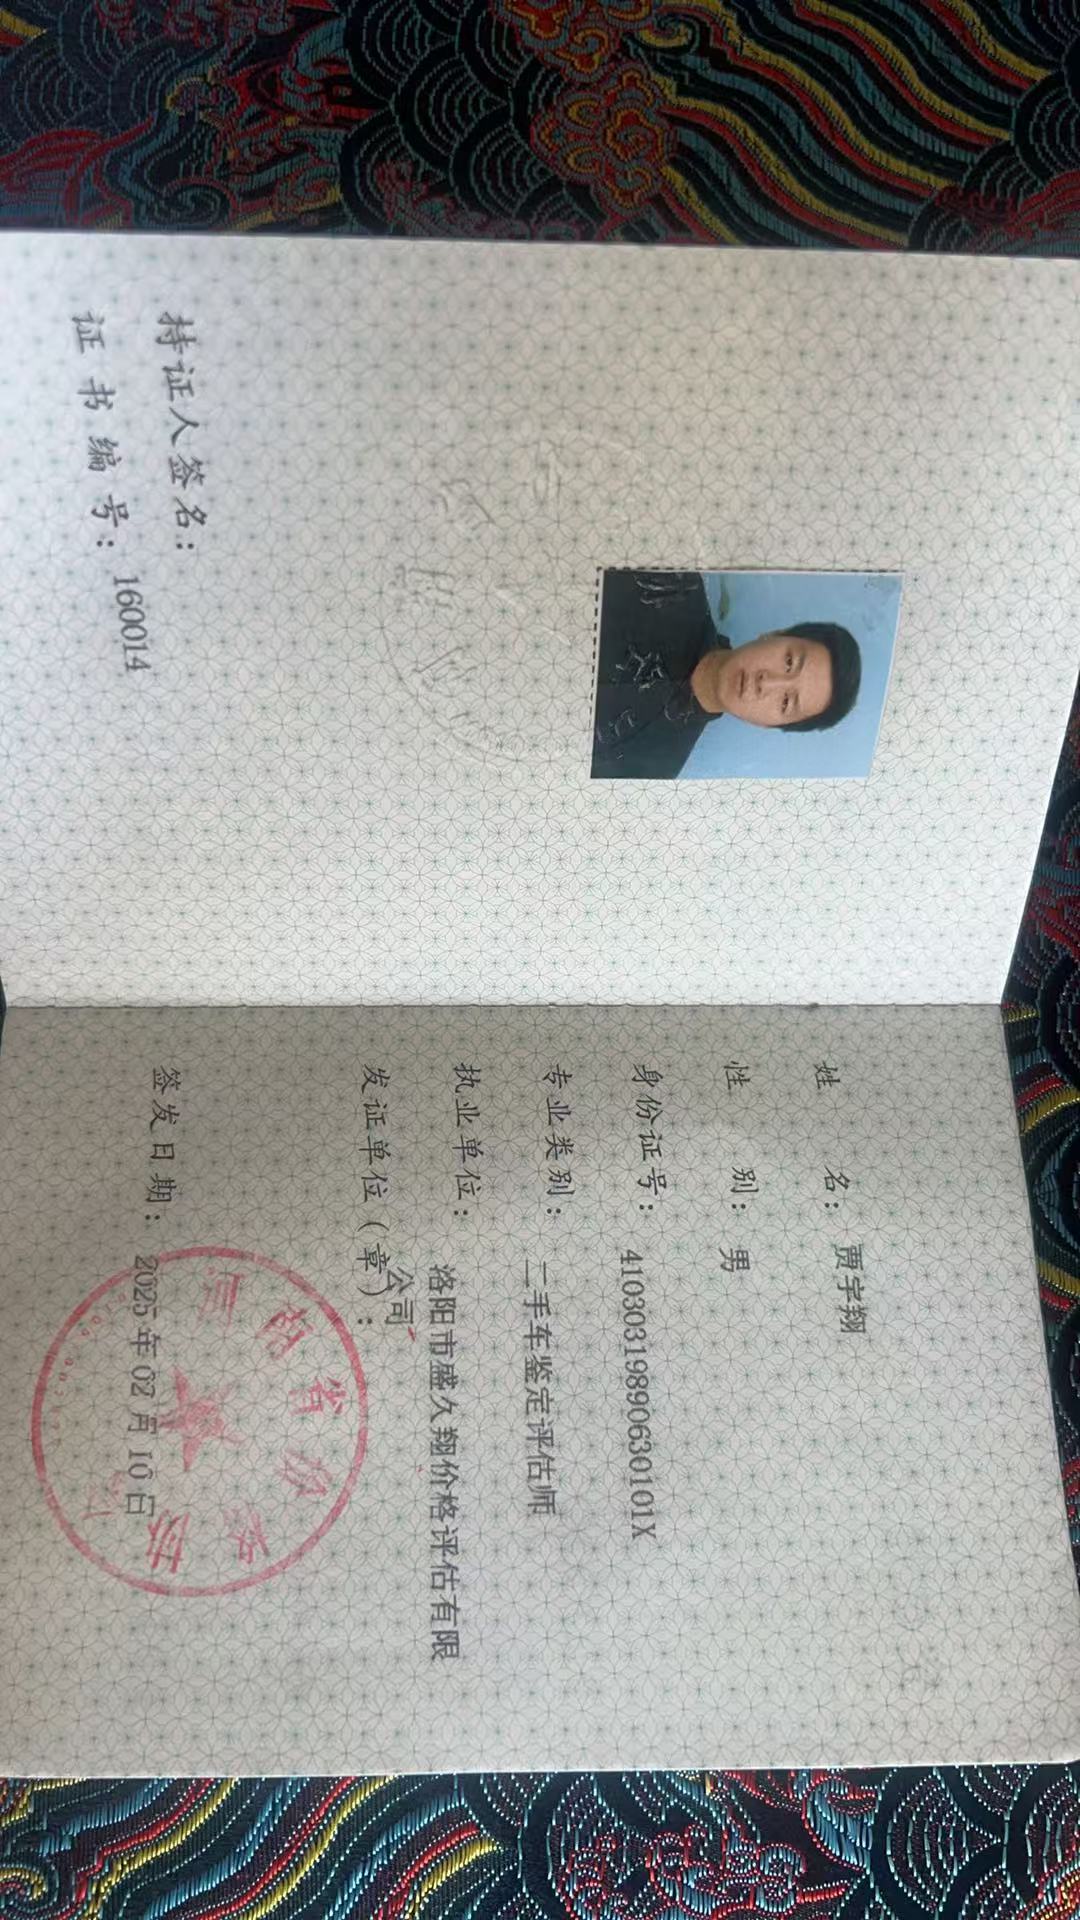 持证人签名：
证书编号：160014
姓 名：贾宇翔
性 别：男
身份证号：41030319890630101X
专业类别：二手车鉴定评估师
执业单位：洛阳市盛久翔价格评估有限
公司
发证单位（章）：
签发日期：2025年02月10日